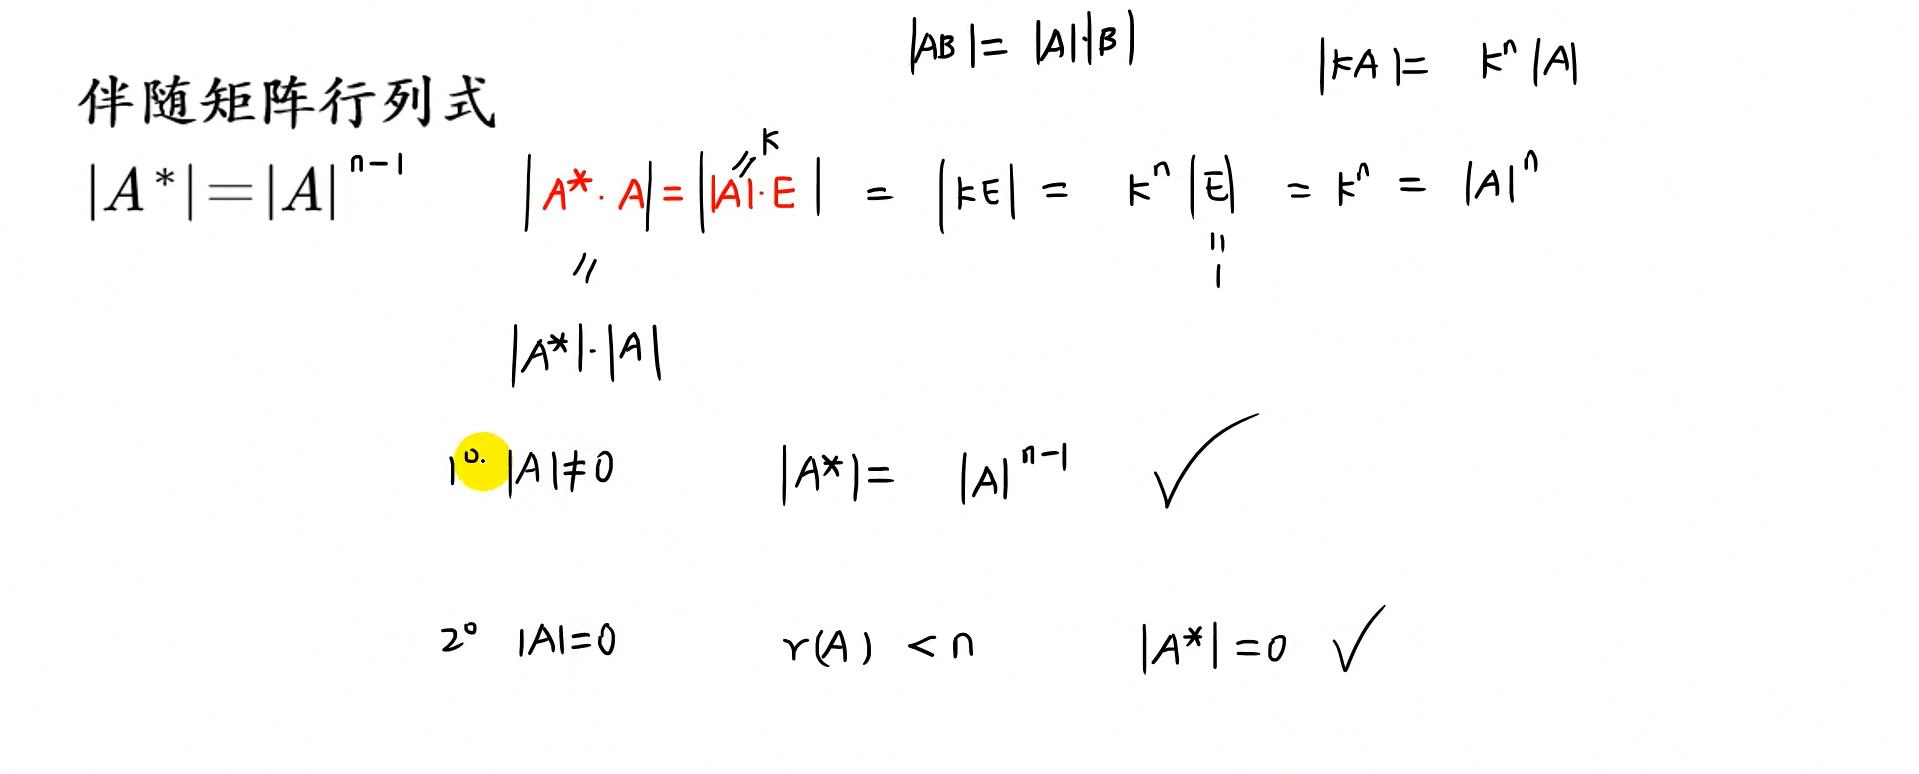 |AB|= |A|·|B|
|kA|= kⁿ|A|
伴随矩阵行列式
k
|A*|=|A|ⁿ⁻¹
|A*·A|=||A|·E| = |kE| = kⁿ|E| = kⁿ = |A|ⁿ
= =
1
|A*|·|A|
1⁰. |A|≠0 |A*|= |A|ⁿ⁻¹ ✓
2⁰ |A|=0 r(A) < n |A*|=0 ✓